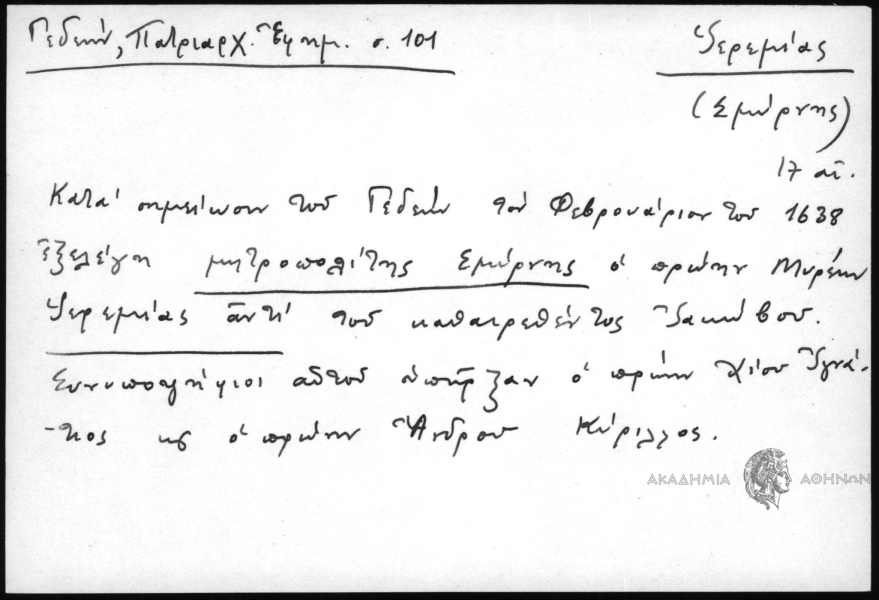 Γεδεών, Πατριαρχ. Ἐφημ. σ. 101
Ἱερεμίας
(Σμύρνης)
17 αἰ.
Κατά σημείωσιν τοῦ Γεδεών τόν Φεβρουάριον τοῦ 1638
ἐξελέγη μητροπολίτης Σμύρνης ὁ πρώην Μυρέων
Ἱερεμίας ἀντί τοῦ καθαιρεθέντος Ἰακώβου.
Συνυποψήφιοι αὐτοῦ ὑπῆρξαν ὁ πρώην Χίου Ἰγνά-
τιος κ ὁ πρώην Ἄνδρου Κύριλλος.
ΑΚΑΔΗΜΙΑ ΑΘΗΝΩΝ